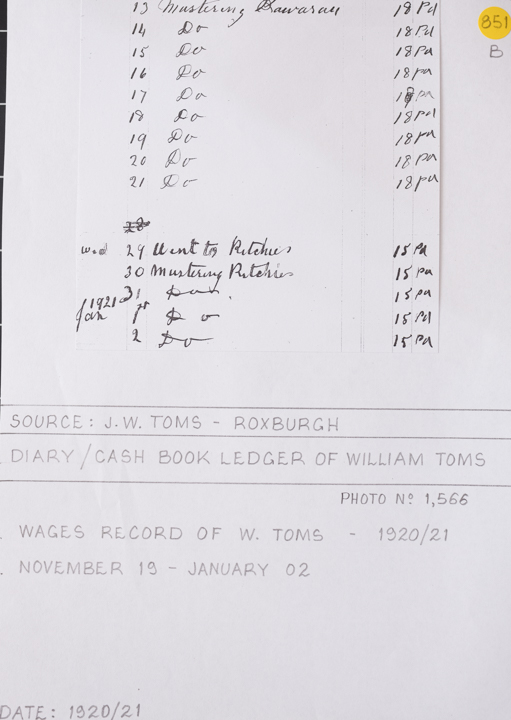 13 Mustering Kawarau 18 Pd
851
14 Do 18 Pd
B
15 Do 18 Pd
16 Do 18 pd
17 Do 18 pd
18 Do 18 Pd
19 Do 18 pd
20 Do 18 pd
21 Do 18 pd
28
wed 29 Went to Ritchies 15 Pd
30 Mustering Ritchies 15 pd
31 Do 15 pd
1921
Jan 1st Do 15 Pd
2 Do 15 Pd
SOURCE: J.W. TOMS - ROXBURGH
DIARY/CASH BOOK LEDGER OF WILLIAM TOMS
PHOTO Nº 1,566
. WAGES RECORD OF W. TOMS - 1920/21
. NOVEMBER 19 - JANUARY 02
DATE: 1920/21